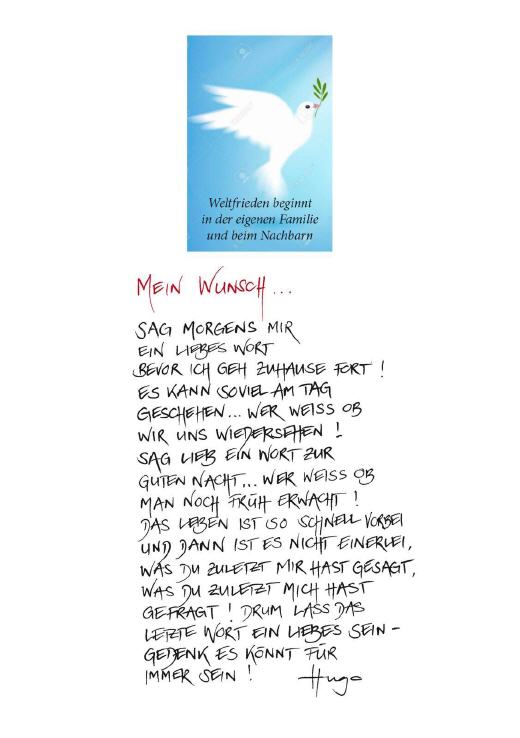 Weltfrieden beginnt
in der eigenen Familie
und beim Nachbarn
MEIN WUNSCH...
SAG MORGENS MIR
EIN LIEBES WORT
BEVOR ICH GEH ZUHAUSE FORT !
ES KANN SOVIEL AM TAG
GESCHEHEN... WER WEISS OB
WIR UNS WIEDERSEHEN !
SAG LIEB EIN WORT ZUR
GUTEN NACHT... WER WEISS OB
MAN NOCH FRÜH ERWACHT !
DAS LEBEN IST SO SCHNELL VORBEI
UND DANN IST ES NICHT EINERLEI,
WAS DU ZULETZT MIR HAST GESAGT,
WAS DU ZULETZT MICH HAST
GEFRAGT ! DRUM LASS DAS
LETZTE WORT EIN LIEBES SEIN -
GEDENK ES KÖNNT FÜR
IMMER SEIN ! Hugo